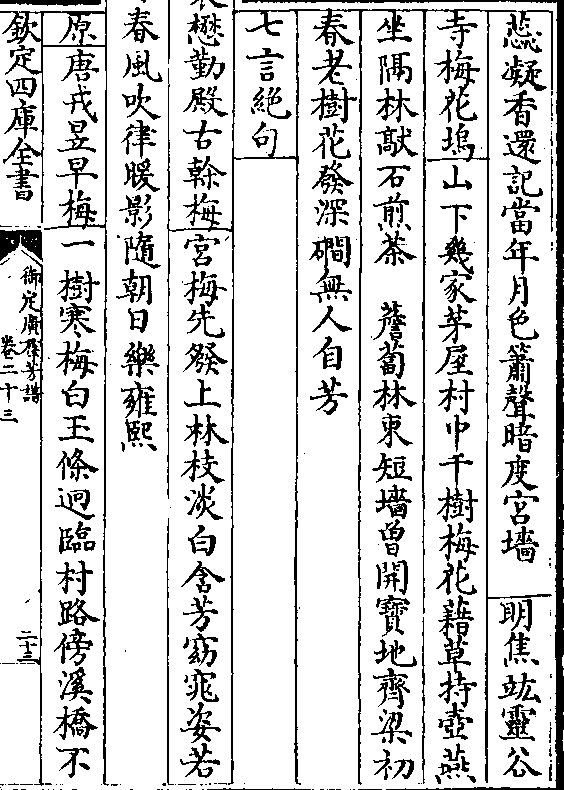 蕊凝香還記當年月色簫聲暗度宮墻　明焦竑靈谷
寺梅花塢山下幾家茅屋村中千樹梅花藉草持壺燕
坐隔林敲石煎茶　薝蔔林東短墻曽開寳地齊梁初
春老樹花發深磵無人自芳
七言絶句
懋勤殿古榦梅宮梅先發上林枝淡白含芳窈窕姿若
春風吹律暖影隨朝日樂雍熙
原唐戎昱早梅一樹寒梅白玉條迥臨村路傍溪橋不
欽定四庫全書
御定廣羣芳譜
卷二十三
二十三